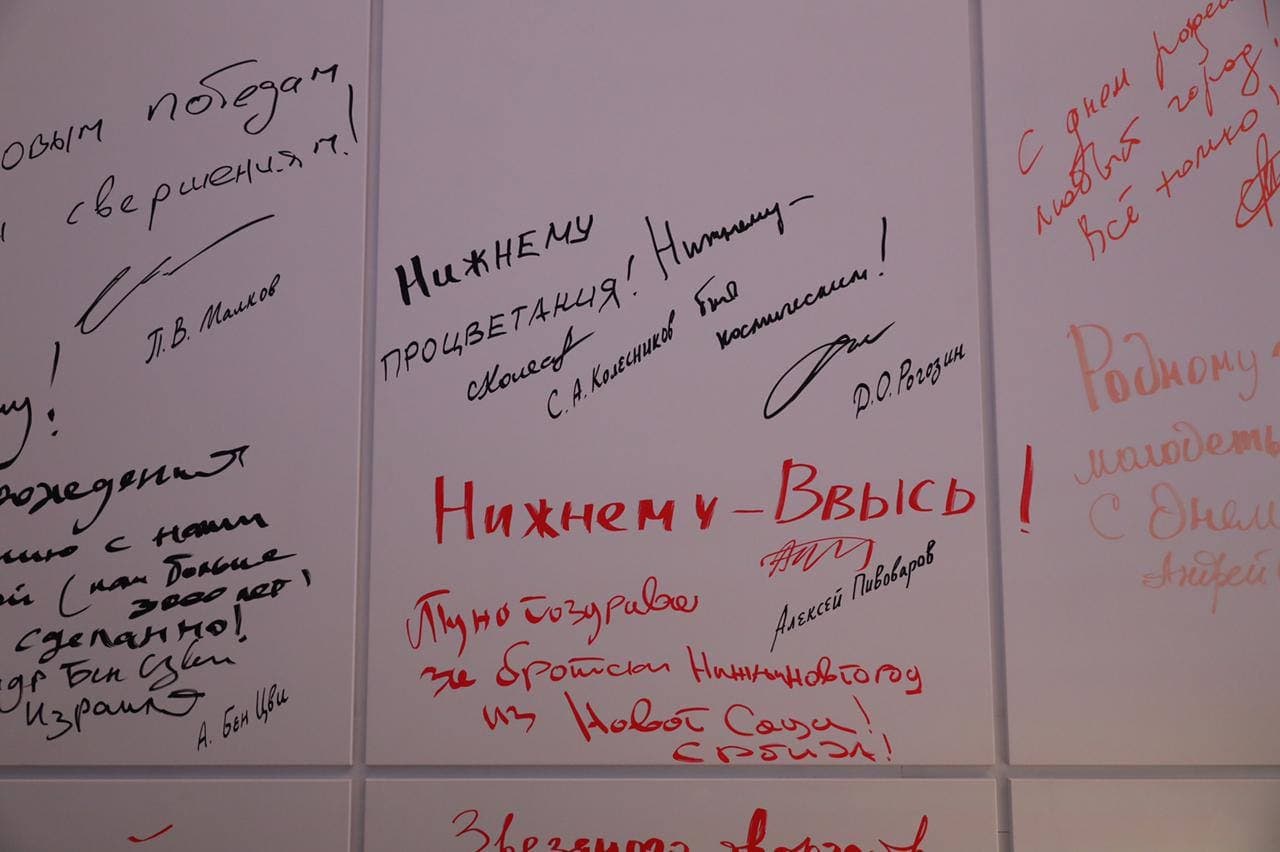 овым победам
свершениям!
П.В. Малков
му!
рождения
нию с наши
ой (нам больше
3000 лет!
сделанно!
ндр Бен Цви
Израиль
А. Бен Цви
Нижнему
процветания! Нижнему –
быть
космическим!
С.А. Колесников
Д.О. Рогозин
Нижнему – Ввысь!
Алексей Пивоваров
Пуно поздрава
за братски
из Новог Сада!
Србија!
С днем рожде
любимый город!
Всё только
Родному
молодеть
С Днем
Андрей